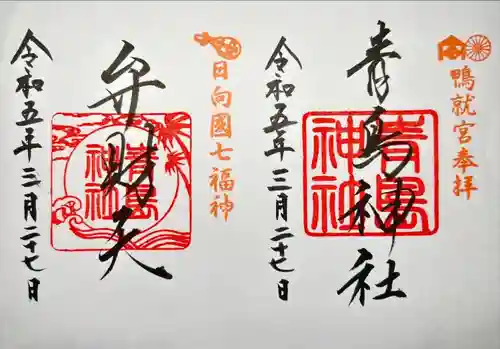 鴨就宮奉拝
青島神社
青島神社
令和五年三月二十七日
日向國七福神
弁財天
青島神社
令和五年三月二十七日